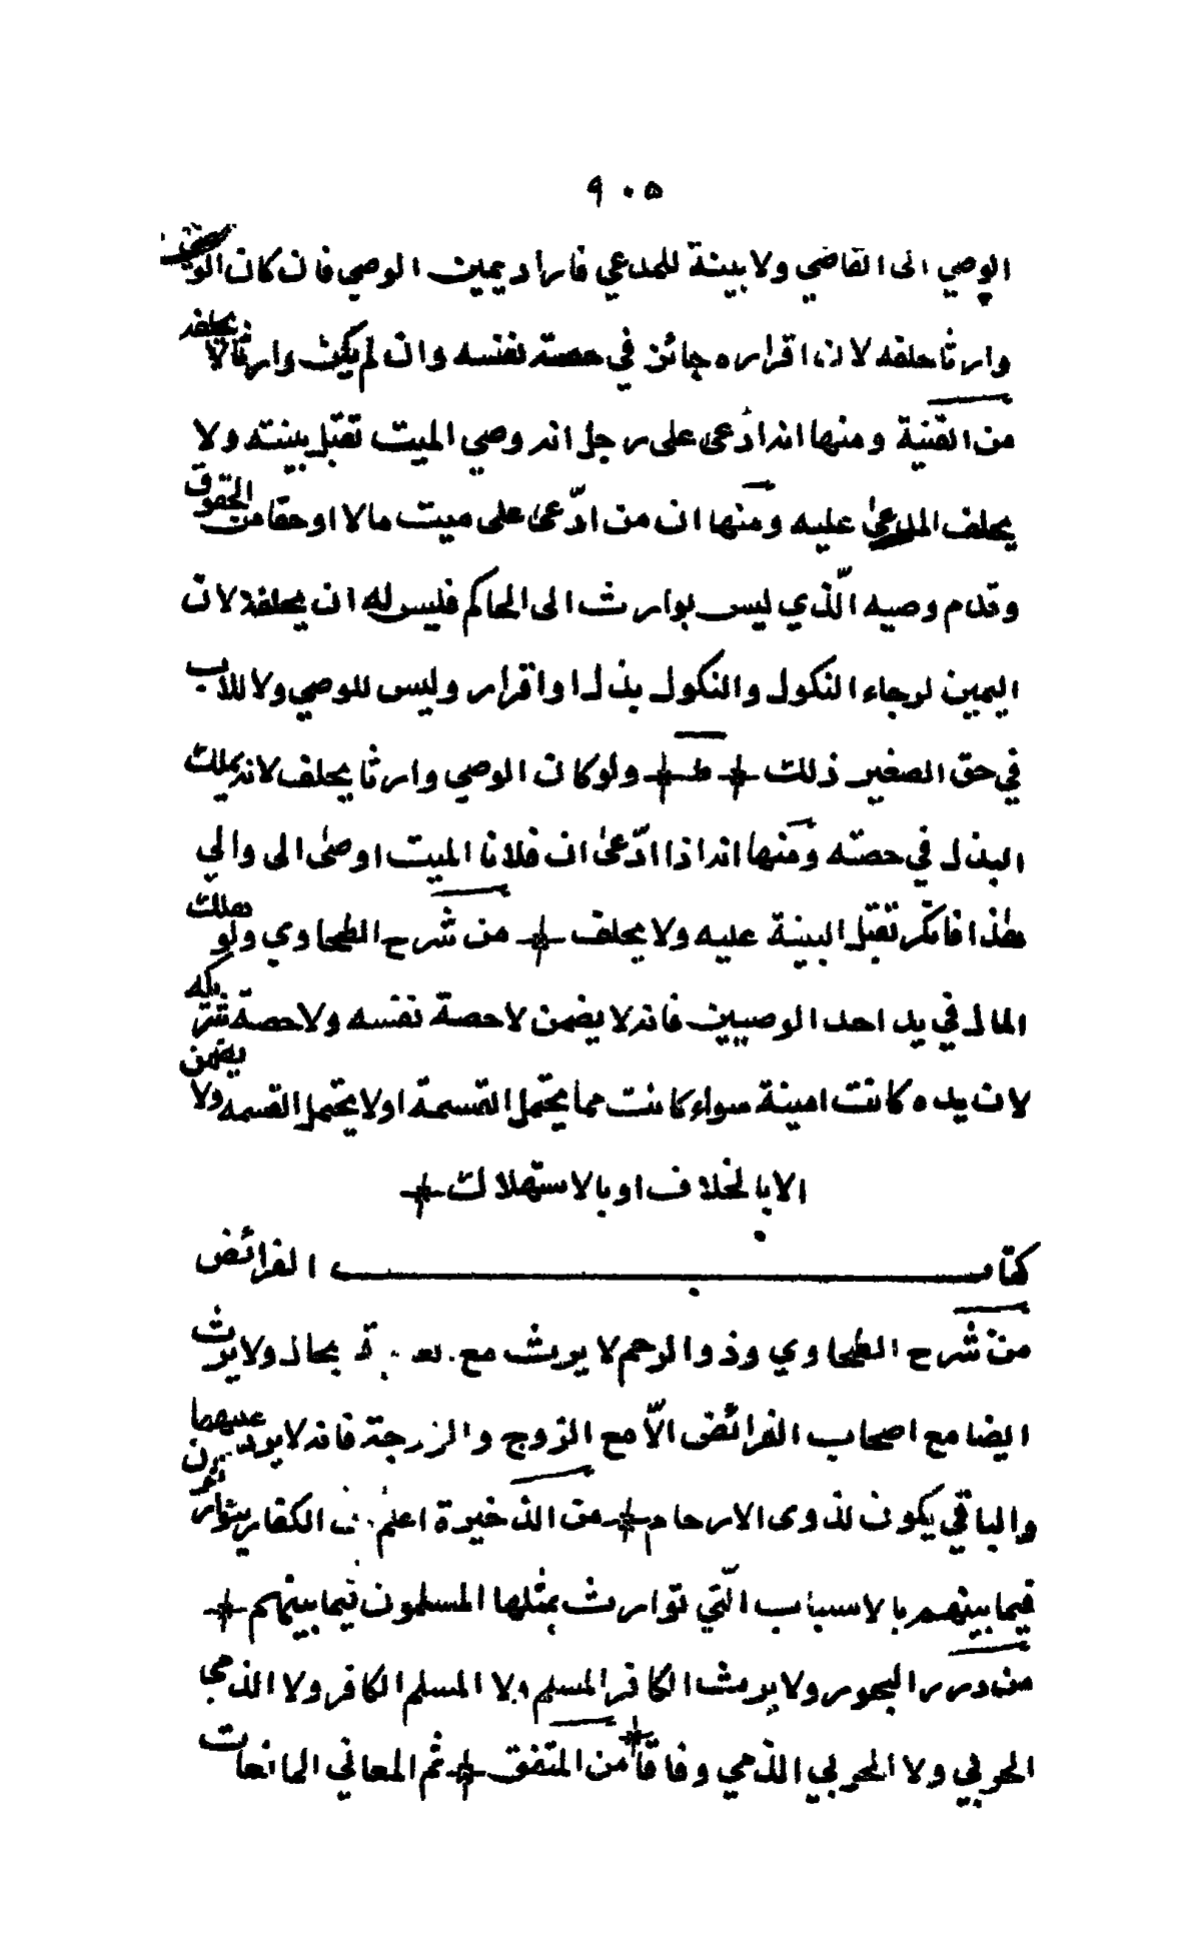 ٩٠٥
الوصي الى القاضي ولا بينة للمدعي فاراد يمين الوصي فان كان الوصي
وارثا حلفه لان اقراره جائز في حصة نفسه وان لم يكن وارثا لا يحلفه
من القنية ومنها انه ادعى على رجل انه وصي الميت تقبل بينته ولا
يحلف المدعى عليه ومنها ان من ادّعى على ميت مالا او حقا من الحقوق
وقدم وصيه الّذي ليس بوارث الى الحاكم فليس له ان يحلفه لان
اليمين لرجاء النكول والنكول بذل او اقرار وليس للوصي ولا للاب
في حق الصغير ذلك ط ولو كان الوصي وارثا يحلف لانه يملك
البذل في حصته ومنها انه اذا ادّعى ان فلانا الميت اوصى الى والى
هٰذا فانكر تقبل البينة عليه ولا يحلف من شرح الطحاوي ولو هلك
المال في يد احد الوصيين فانه لا يضمن لا حصة نفسه ولا حصة شريكه
لان يده كانت امينة سواء كانت مما يحتمل القسمة او لا يحتمل القسمه ولا يضمن
الا بالخلاف او بالاستهلاك
كتاب الفرائض
من شرح الطحاوي وذو الرحم لا يرث مع بحال ولا يرث
ايضا مع اصحاب الفرائض الّا مع الزوج والزوجة فانه لا يرد عليهما
والباقي يكون لذوى الارحام من الذخيرة اعلم الكفار يتوارثون
فيما بينهم بالاسباب الّتي توارث بمثلها المسلمون فيما بينهم
من درر البحور ولا يرث الكافر المسلم ولا المسلم الكافر ولا الذمي
الحربي ولا الحربي الذمي وفاقا من المتفق ثم المعاني المانعات